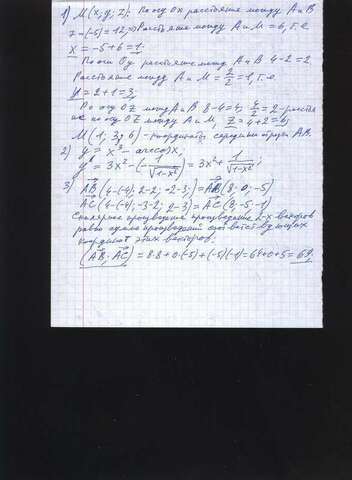 1) M(x, y, z). По оси Ox расстояние между A и B
7-(-5)=12, => Расстояние между A и M = 6, т.е.
x = -5+6=1.
По оси Oy расстояние между A и B 4-2=2.
Расстояние между A и M = 2/2 = 1, т.е.
y = 2+1=3,
По оси OZ между A и B 8-4=4, 4/2=2 - расстоя-
ние по оси OZ между A и M, z = 4+2=6;
M(1, 3, 6) - координаты середины отрезка AB.
2) y = x³ - arccos x,
y' = 3x² - (-1/√(1-x²)) = 3x² + 1/√(1-x²);
3) AB(4-(-4); 2-2; -2-3;) = AB(8; 0; -5)
AC(4-(-4); -3-2; 2-3) = AC(8; -5; -1)
Скалярное произведение 2-х векторов
равно сумме произведений соответствующих
координат этих векторов:
(AB; AC) = 8·8+0·(-5)+(-5)(-1)=64+0+5=69.